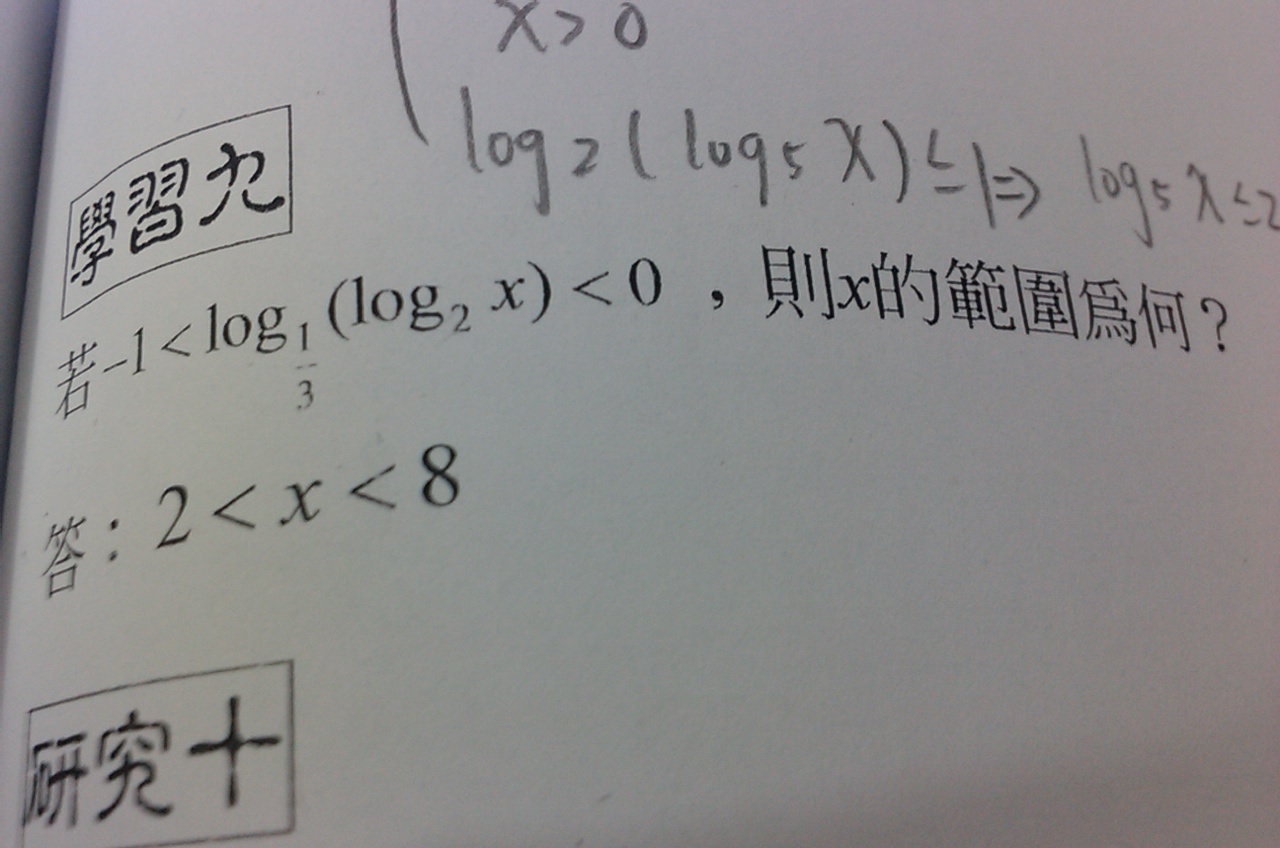 x > 0
log₂(log₅ x) ≤ 1 ⇒ log₅ x ≤ 2
學習九
若 -1 < log_{1/3}(log₂ x) < 0 ，則x的範圍爲何？
答：2 < x < 8
研究十